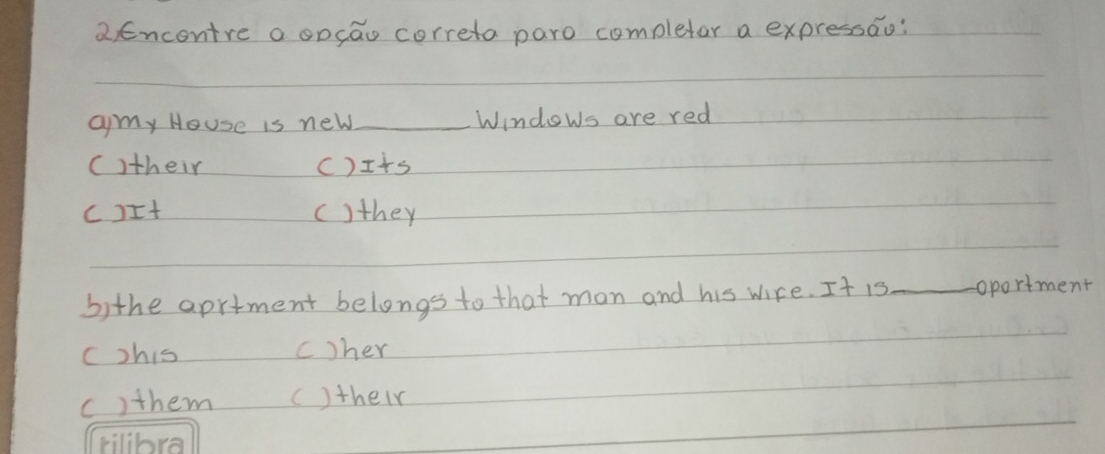 2) Encontre a opção correta para completar a expressão:
a) my House is new______ Windows are red
( ) their ( ) Its
( ) It ( ) they
b) the aprtment belongs to that man and his wife. It is______ apartment
( ) his ( ) her
( ) them ( ) their
tilibra